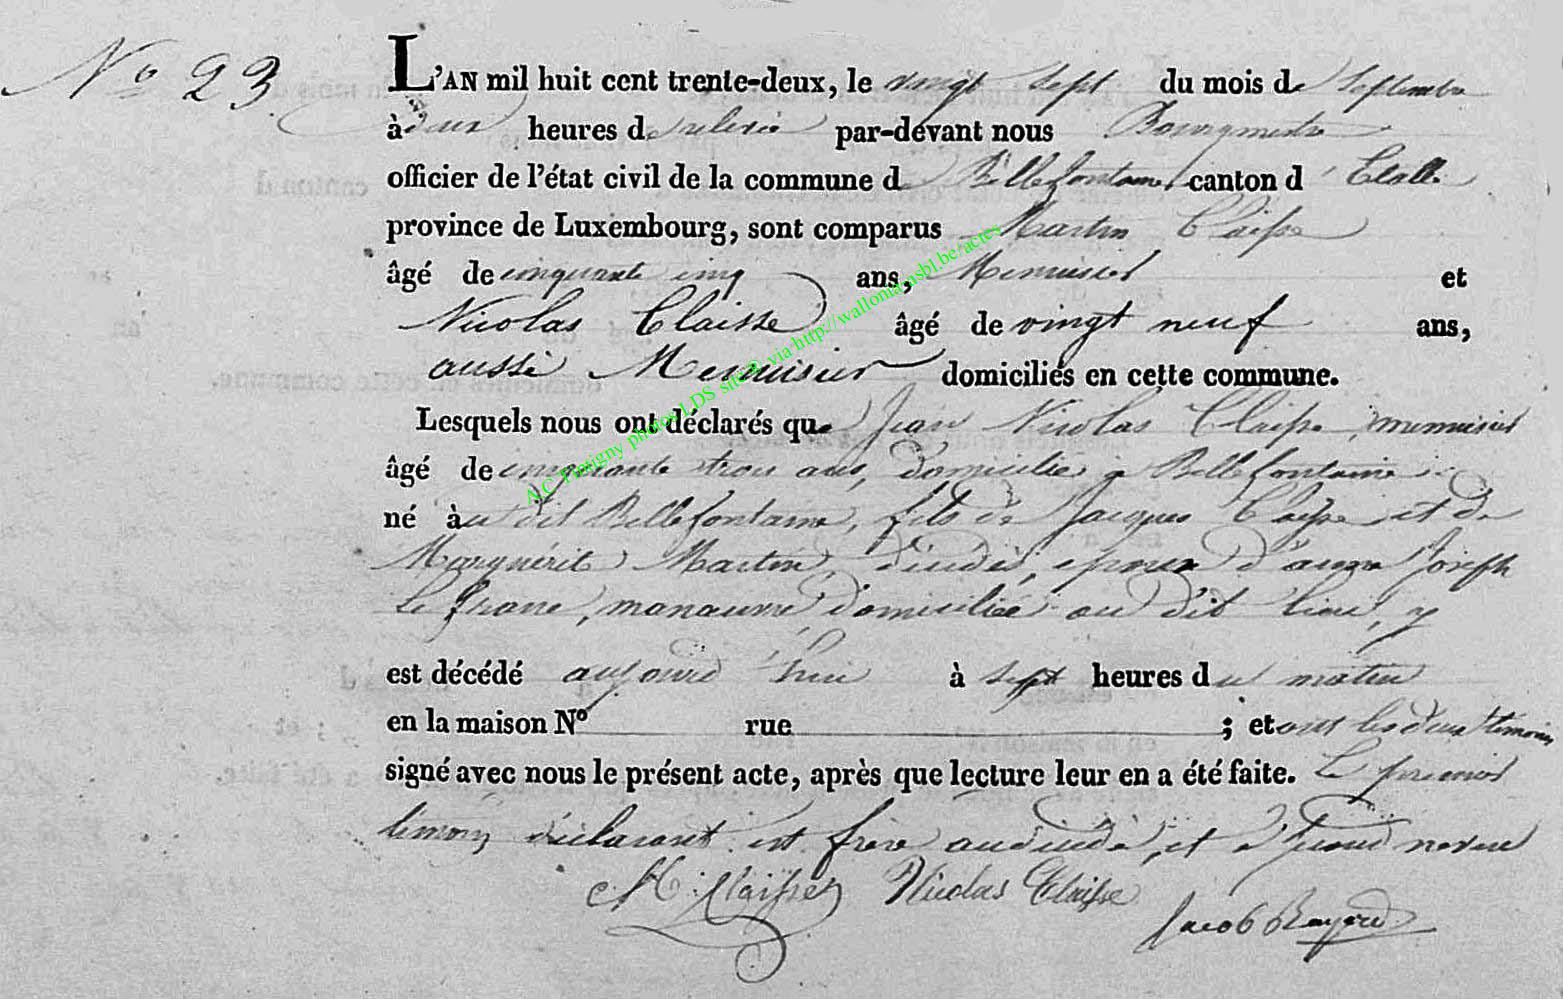 N° 23
L'AN mil huit cent trente-deux, le vingt sept du mois de Septembre
à deux heures de relevée par-devant nous Bourgmestre
officier de l'état civil de la commune de Bellefontaine canton d'Etalle
province de Luxembourg, sont comparus Martin Claisse
âgé de cinquante cinq ans, Menuisier et
Nicolas Claisse âgé de vingt neuf ans,
aussi Menuisier domiciliés en cette commune.
Lesquels nous ont déclarés que Jean Nicolas Claisse, menuisier
âgé de cinquante trois ans, domicilié à Bellefontaine
né au dit Bellefontaine, fils de Jacques Claisse et de
Marguerite Martin, décédés, epoux d'anne Joseph
Le franc, manœuvre, domiciliée au dit lieu, y
est décédé aujourd'hui à sept heures du matin
en la maison N° rue ; et ont les deux témoins
signé avec nous le présent acte, après que lecture leur en a été faite. Le premier
témoin déclarant est frère au décédé, et le second neveu
M: Claisse Nicolas Claisse
Jacob Bayard
A.C. Tintigny photos LDS sitées via http://walloniaasbl.be/actes